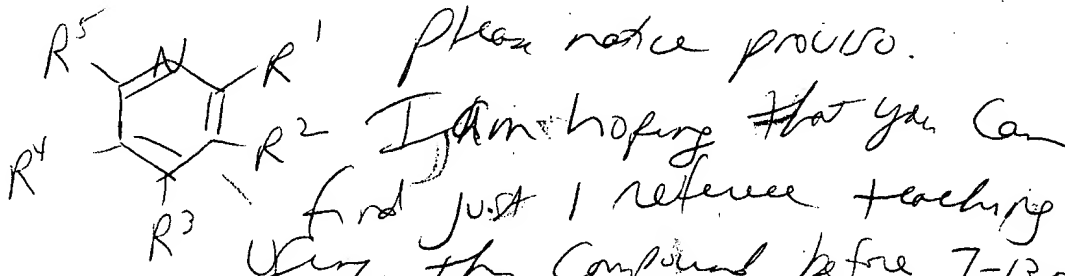 R⁵ N R¹ please notice proviso.
R⁴ R² I am hoping that you can
R³ find just 1 reference teaching
using this compound before 7-13